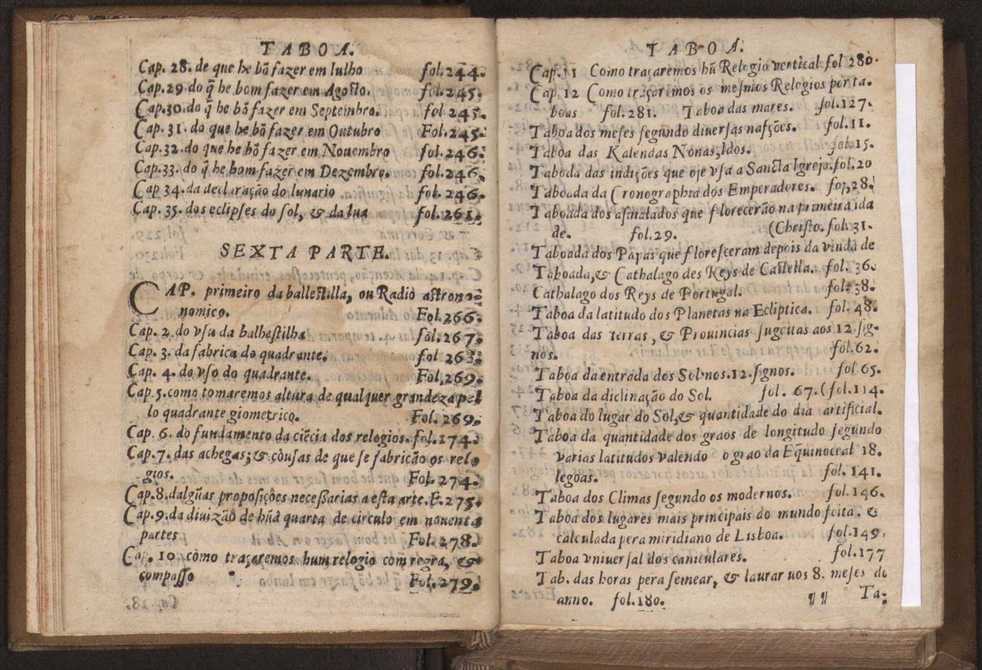 TABOA.
Cap. 28. de que he bõ fazer em Iulho fol. 244.
Cap. 29 do q̃ he bom fazer em Agosto. fol. 245.
Cap. 30. do q̃ he bõ fazer em Septembro. fol 245.
Cap. 31. do que he bõ fazer em Outubro Fol. 245.
Cap. 32. do que he bõ fazer em Nouembro fol. 246.
Cap. 33. do q̃ he bom fazer em Dezembro. fol. 246.
Cap 34. da declaração do lunario fol. 246.
Cap. 35. dos eclipses do sol, & da lua fol. 261.
SEXTA PARTE.
CAP. primeiro da ballestilla, ou Radio astron
nomico. Fol. 266.
Cap. 2. do vsu da balhestilha fol. 267.
Cap. 3. da fabrica do quadrante. fol 263.
Cap. 4. do vso do quadrante. Fol, 269.
Cap. 5. como tomaremos altura de qualquer grandeza pel
lo quadrante giometrico. Fol. 269.
Cap. 6. do fundamento da ciẽcia dos relogios. fol. 174.
Cap. 7. das achegas; & cousas de que se fabricão os relo
gios. Fol. 274.
Cap. 8. dalgũas proposições necessarias a esta arte. F. 275.
Cap. 9. da diuizão de hũa quarta de circulo em nouenta
partes Fol. 278.
Cap. 10. como traçaremos hum relogio com regra, &
compasso Fol. 279.
TABOA.
Cap. 11 Como traçaremos hũ Relogio vertical fol 280.
Cap. 12 Como traçaremos os mesmos Relogios porta-
bens fol. 281. Taboa das mares. fol. 127.
Taboa dos meses segundo diuersas nasções. fol. 11.
Taboa das Kalendas Nonas, Idos. fol. 15.
Taboda das indições que oje vsa a Sancta Igreja. fol. 20
Taboada da Cronographia dos Emperadores. fol, 28.
Taboada dos asinalados que florecerão na primeira ida
de. fol. 29. (Christo. fol. 31.
Taboada dos Papas que floresceram depois da vinda de
Taboada, & Cathalago des Reys de Castella. fol. 36.
Cathalago dos Reys de Portugal. fol. 38.
Taboa da latitudo dos Planetas na Ecliptica. fol. 48.
Taboa das terras, & Prouincias sugeitas aos 12. sig-
nos. fol. 62.
Taboa da entrada dos Sol nos. 12. signos. fol 65.
Taboa da diclinação do Sol. fol. 67. (fol. 114.
Taboa do lugar do Sol, & quantidade do dia artificial.
Taboa da quantidade dos graos de longitudo segundo
varias latitudos valendo o grao da Equinoceal 18.
legoas. fol. 141.
Taboa dos Climas segundo os modernos. fol. 146.
Taboa dos lugares mais principais do mundo feita, &
calculada pera miridiano de Lisboa. fol. 149.
Taboa vniuersal dos caniculares. fol. 177
Tab. das horas pera semear, & laurar nos 8. meses do
anno. fol. 180. ¶¶ Ta-